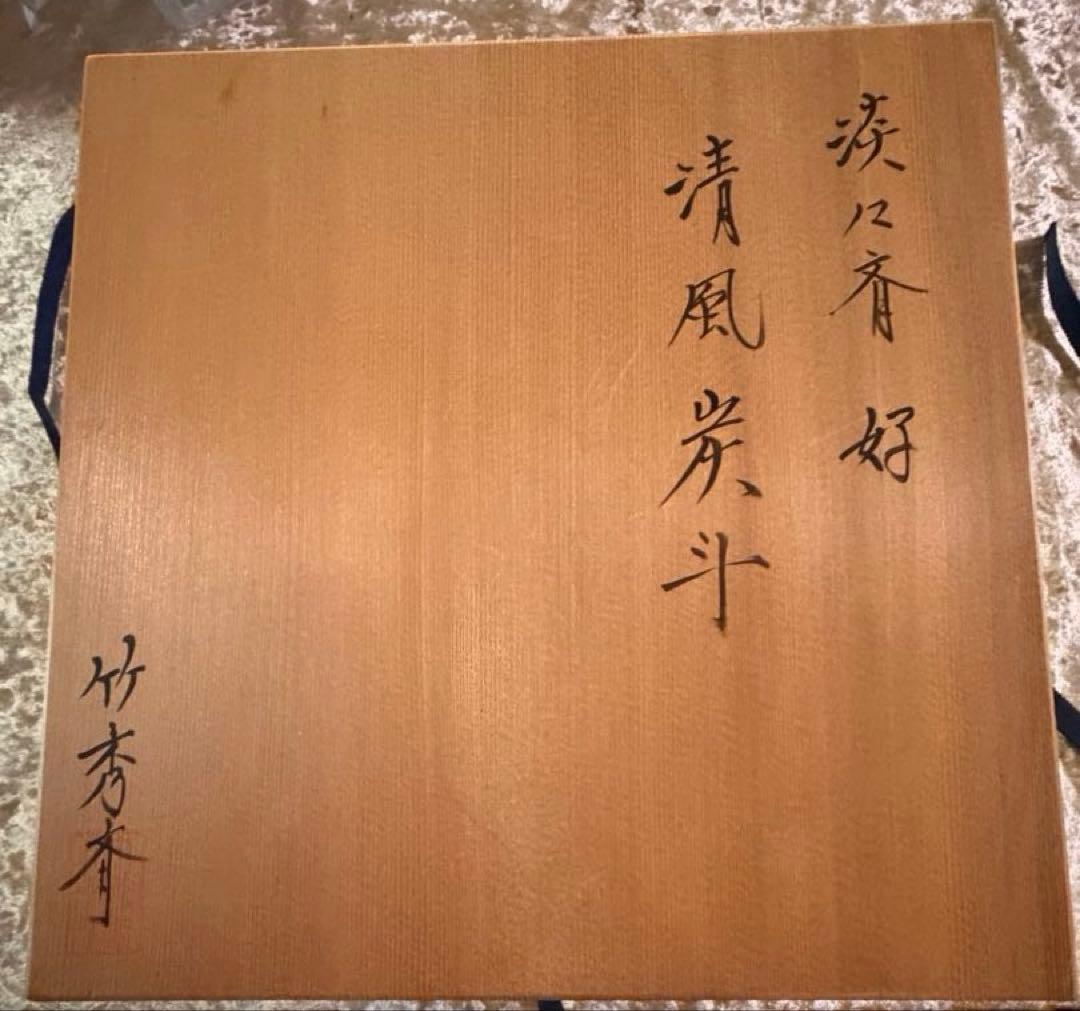 淡々斉 好
清風 炭斗
竹秀斉